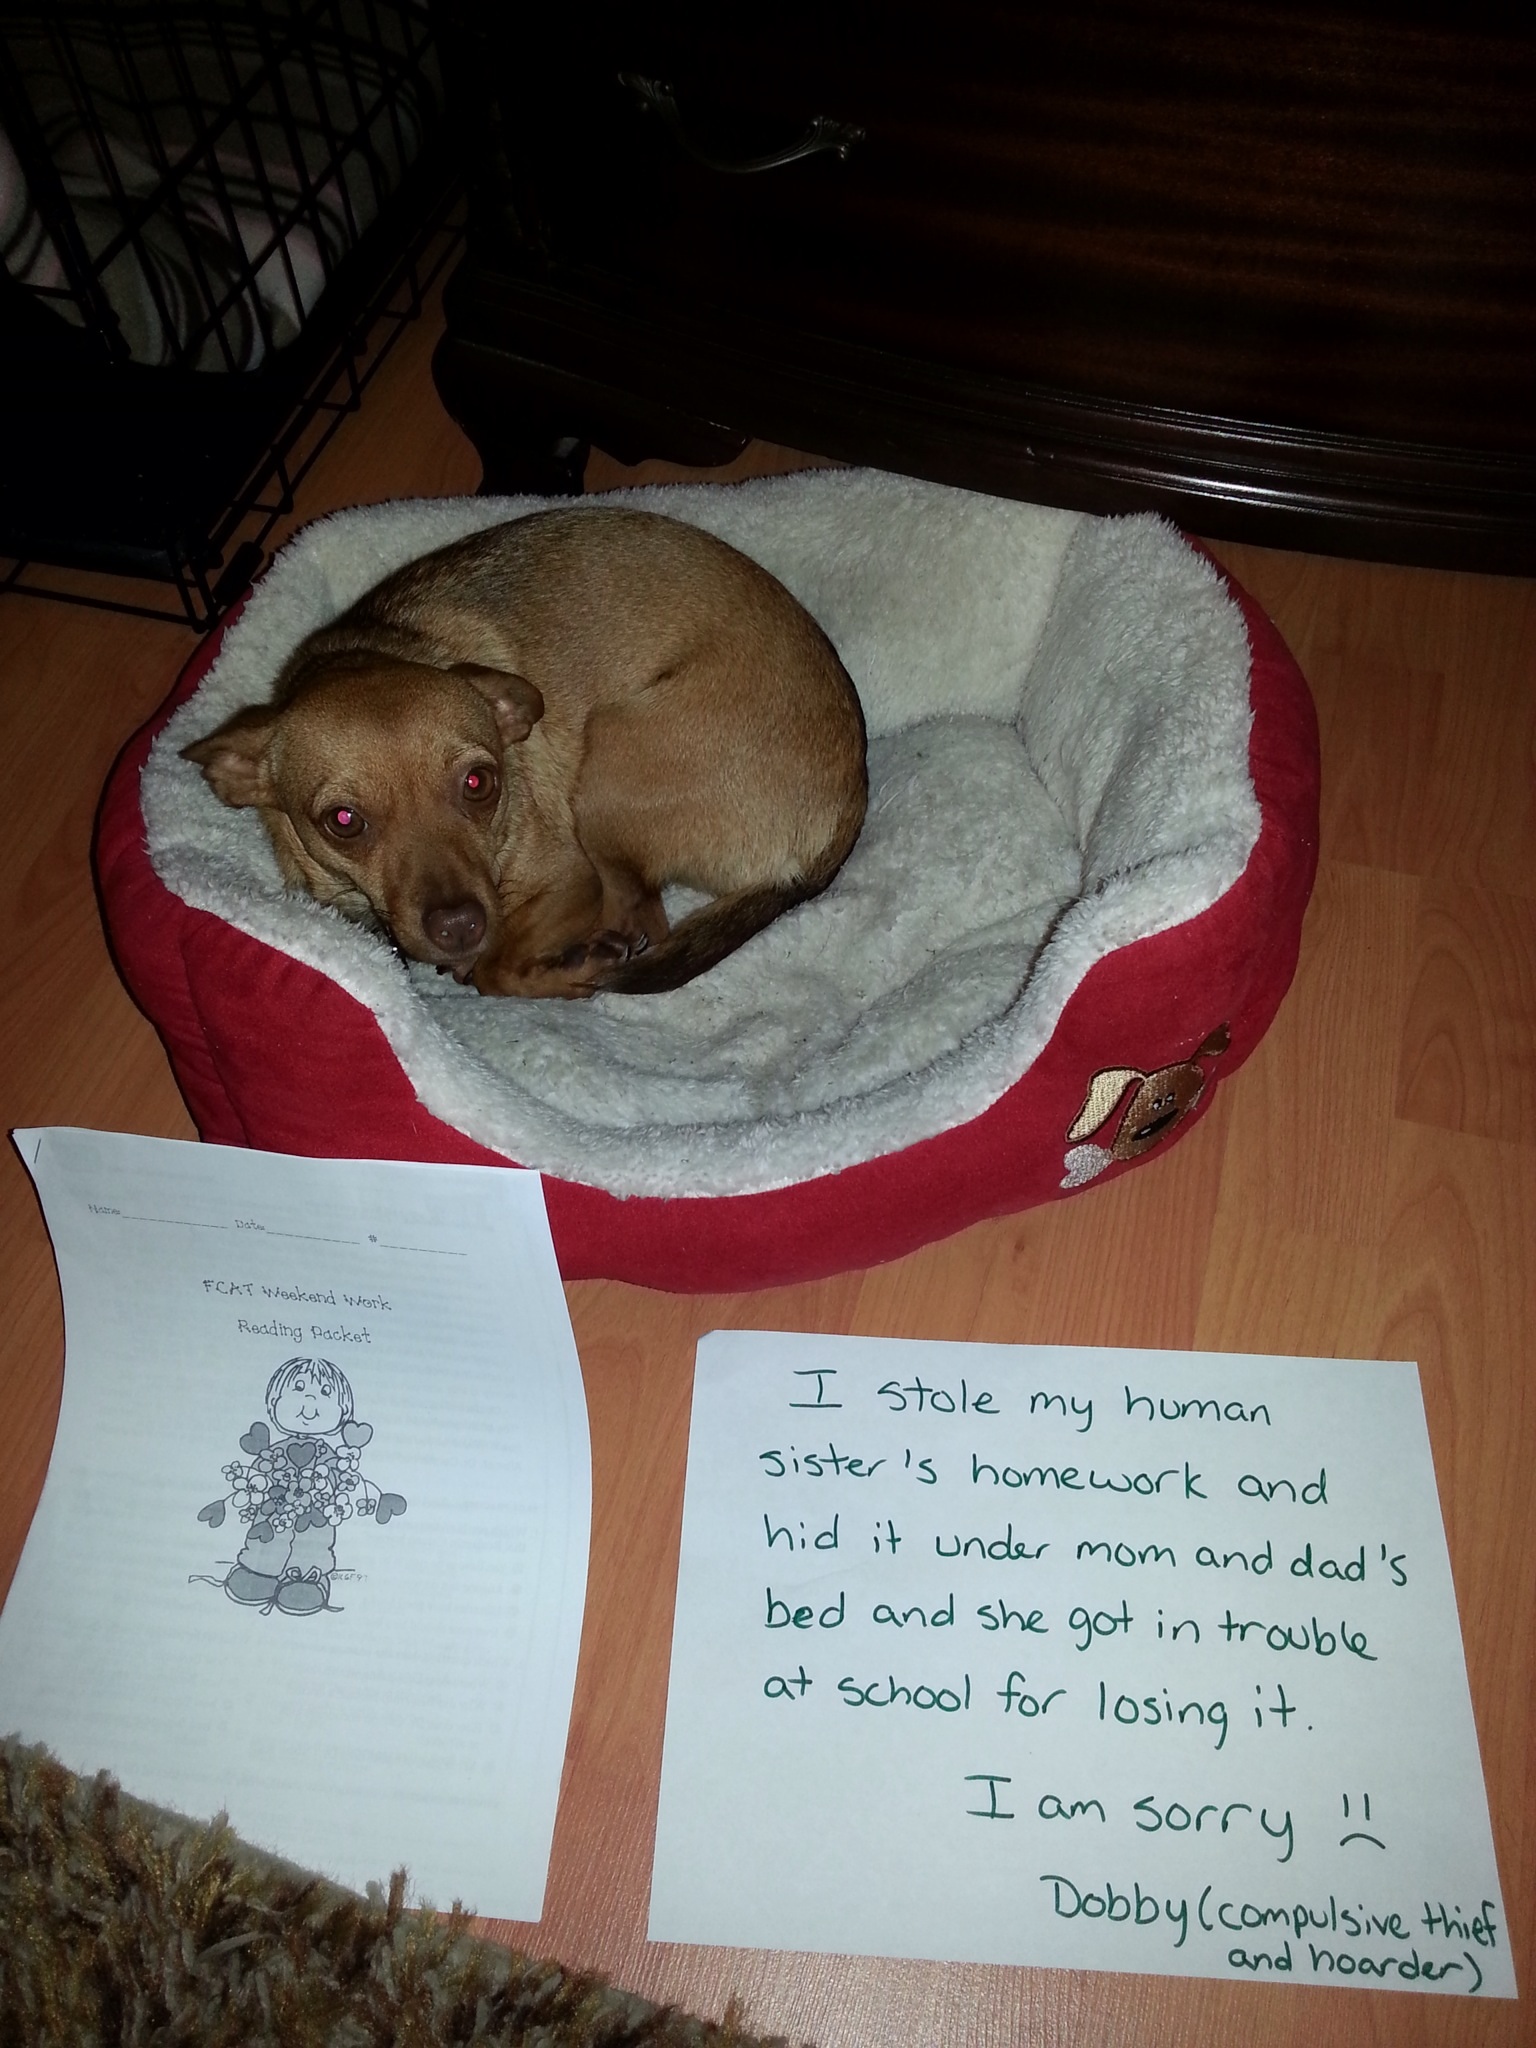 Name____________ Date____________ #____________
FCAT Weekend Work
Reading Packet
©KGF97
I stole my human
sister's homework and
hid it under mom and dad's
bed and she got in trouble
at school for losing it.
I am sorry
Dobby (compulsive thief
and hoarder)